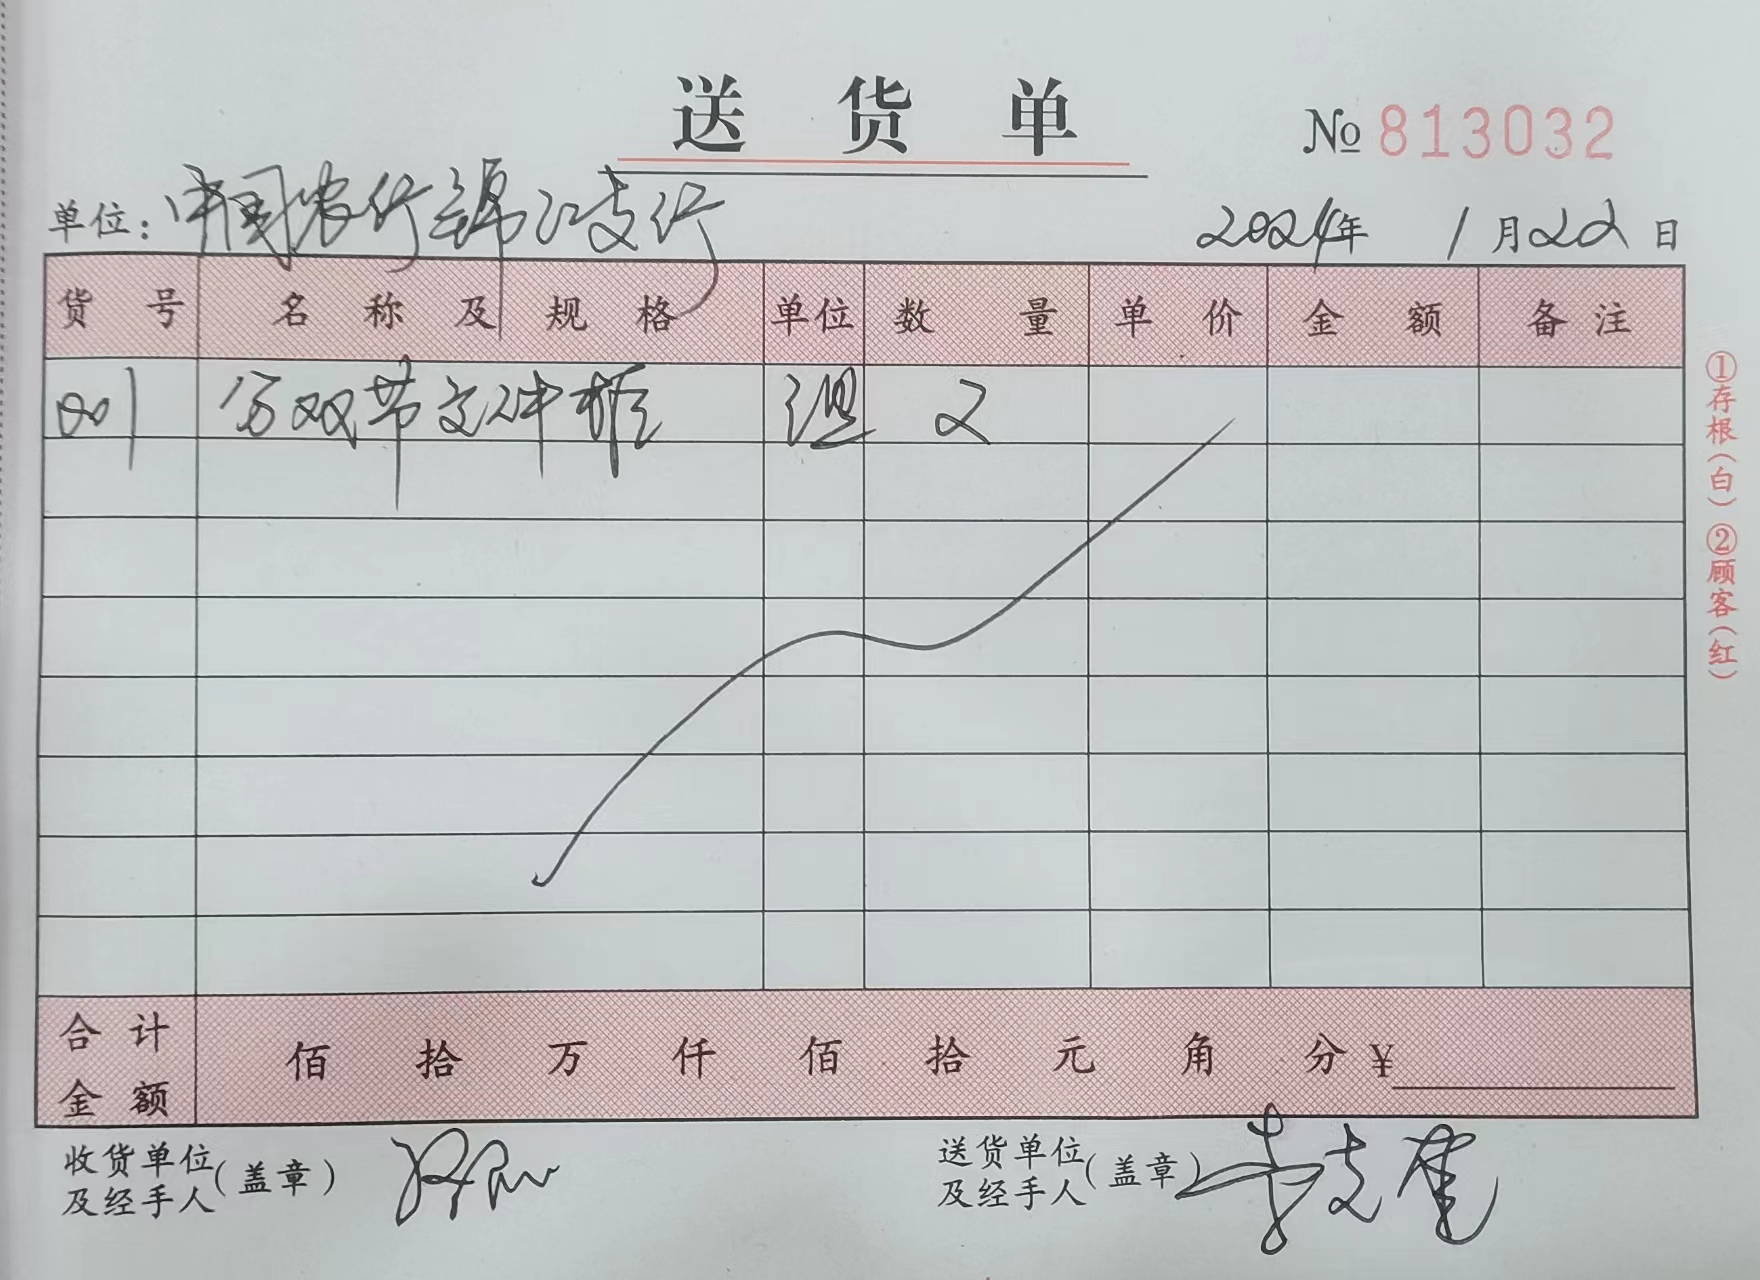 送货单
№ 813032
单位：中国农行锦江支行 2024年 1月22日
货号 名称及规格 单位 数量 单价 金额 备注
001 双节文件柜 组 2
合计金额 佰 拾 万 仟 佰 拾 元 角 分 ¥
收货单位及经手人（盖章）
送货单位及经手人（盖章）
①存根（白）②顾客（红）